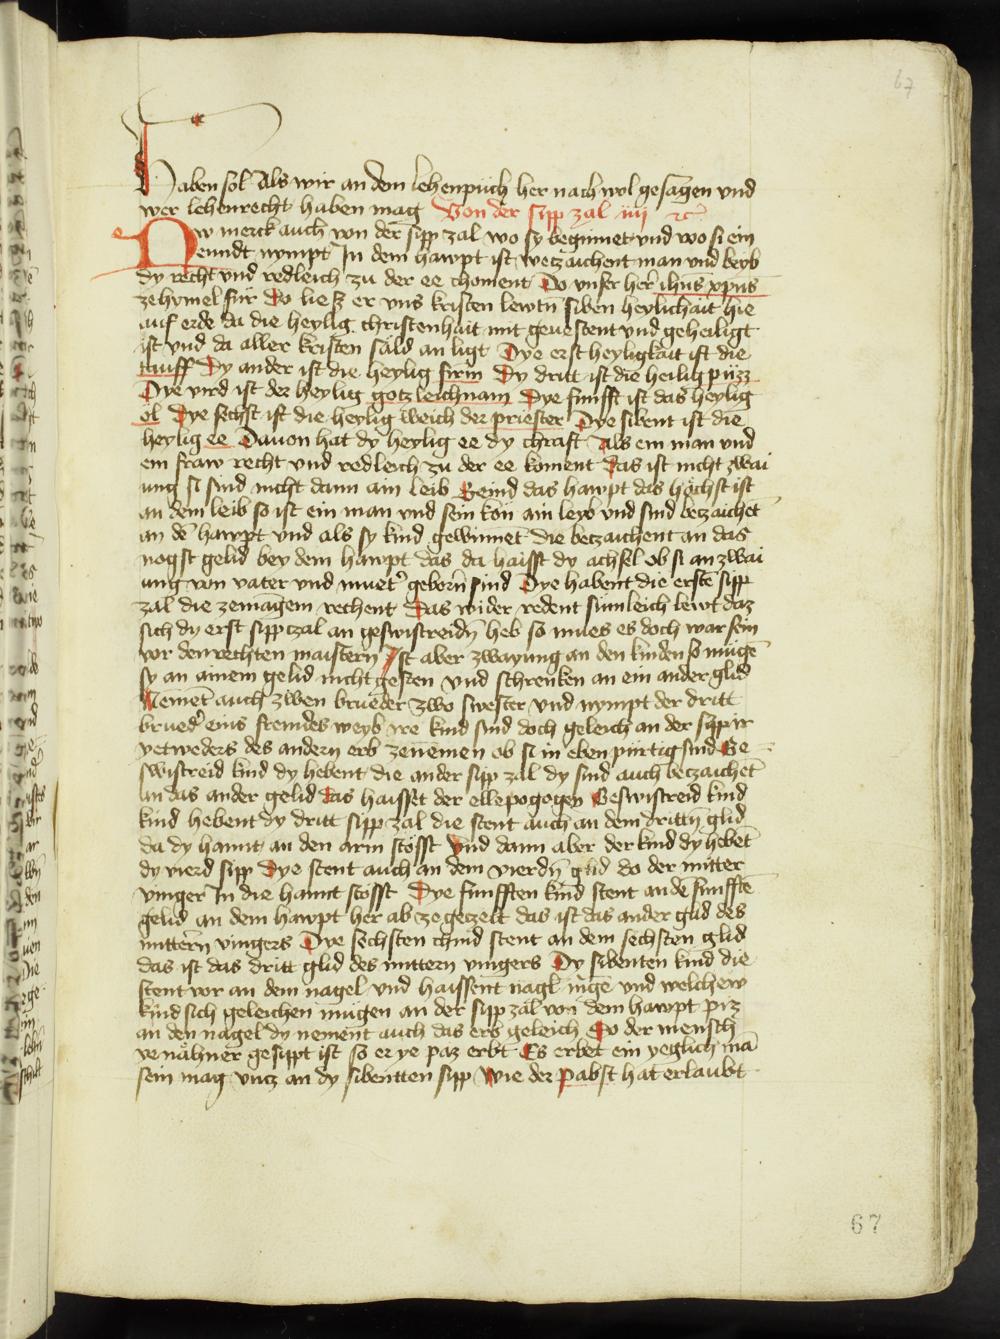 67
Haben sol Als wir an dem lehenpuch her nach wol gesagen vnd
wer lehenrecht haben mag Von der sipp zal iiij rc
Nw merck auch von der sipp zal wo sy beginnet vnd wo si ein
ennde nympt In dem hawpt ist petzaichent man vnd beyb
dy recht vnd redleich zu der ee choment Do vnser her ihus xpus
ze hymel für Do liesz er vns kristen lewtn siben heylichait hie
auf erde da die heylig christenhait mit geuestent vnd geheiligt
ist vnd da aller kristen säld an ligt Dye erst heyligkait ist die
tauff Dy ander ist die heylig firm Dy dritt ist die heilig püzz
Dye vird ist der heylig gotz leichnam Dye funfft ist das heylig
öl Dye sechst ist die heylig weich der priester Dye sibent ist die
heylig ee Dauon hat dy heylig ee dy chraft Als ein man vnd
ein fraw recht vnd redleich zu der ee koment Das ist nicht zwai
ung si sind nicht dann ain leib Seind das hawpt das höchst ist
an dem leib so ist ein man vnd sein kon ain leyb vnd sind betzaichet
an de hawpt vnd als sy kind gewinnet die betzaichent an das
nagst gelid bey dem hawpt das da haisst dy achsel ob si an zwai
ung von vater vnd muet geborn sind Dye habent die erste sipp
zal die ze magem rechent Das wider redent sumleich lewt daz
sich dy erst sippzal an geswistreidn heb so mues es doch war sein
vor den rechten maistern Ist aber zwayung an den kinden so müge
sy an ainem gelid nicht gesten vnd schrenken an ein ander glid
Nement auch zwen brueder zwo swester vnd nympt der dritt
brued eins fremdes weyb ire kind sind doch geleich an der sipp ir
yetweders des andern erb ze nemen ob si in eben pürtig sind Ge
swistreid kind dy hebent die ander sipp zal dy sind auch betzaichet
an das ander gelid das haisset der ellepogogen Geswistreid kind
kind hebent dy dritt sipp zal die stent auch an dem drittn glid
da dy hannt an den arm stosst Vnd dann aber der kind dy hebet
dy vierd sipp Dye stent auch an dem vierdn glid do der mitter
vinger in die hannt stosst Dye funfften kind stent an de funffte
gelid an dem hawpt her ab ze getzelt das ist das ander glid des
mittern vingers Dye sechsten chind stent an dem sechsten glid
das ist das dritt glid des mittern vingers Dy sibenten kind die
stent vor an dem nagel vnd haissent nagl mge vnd welchew
kind sich geleichen mügen an der sipp zal von dem hawpt piz
an den nagel dy nement auch das erb geleich So der mensch
ye nähner gesippt ist so er ye paz erbt Es erbet ein yeglich ma
sein mag vncz an dy sibentten sipp Wie der pabst hat erlaubt
67